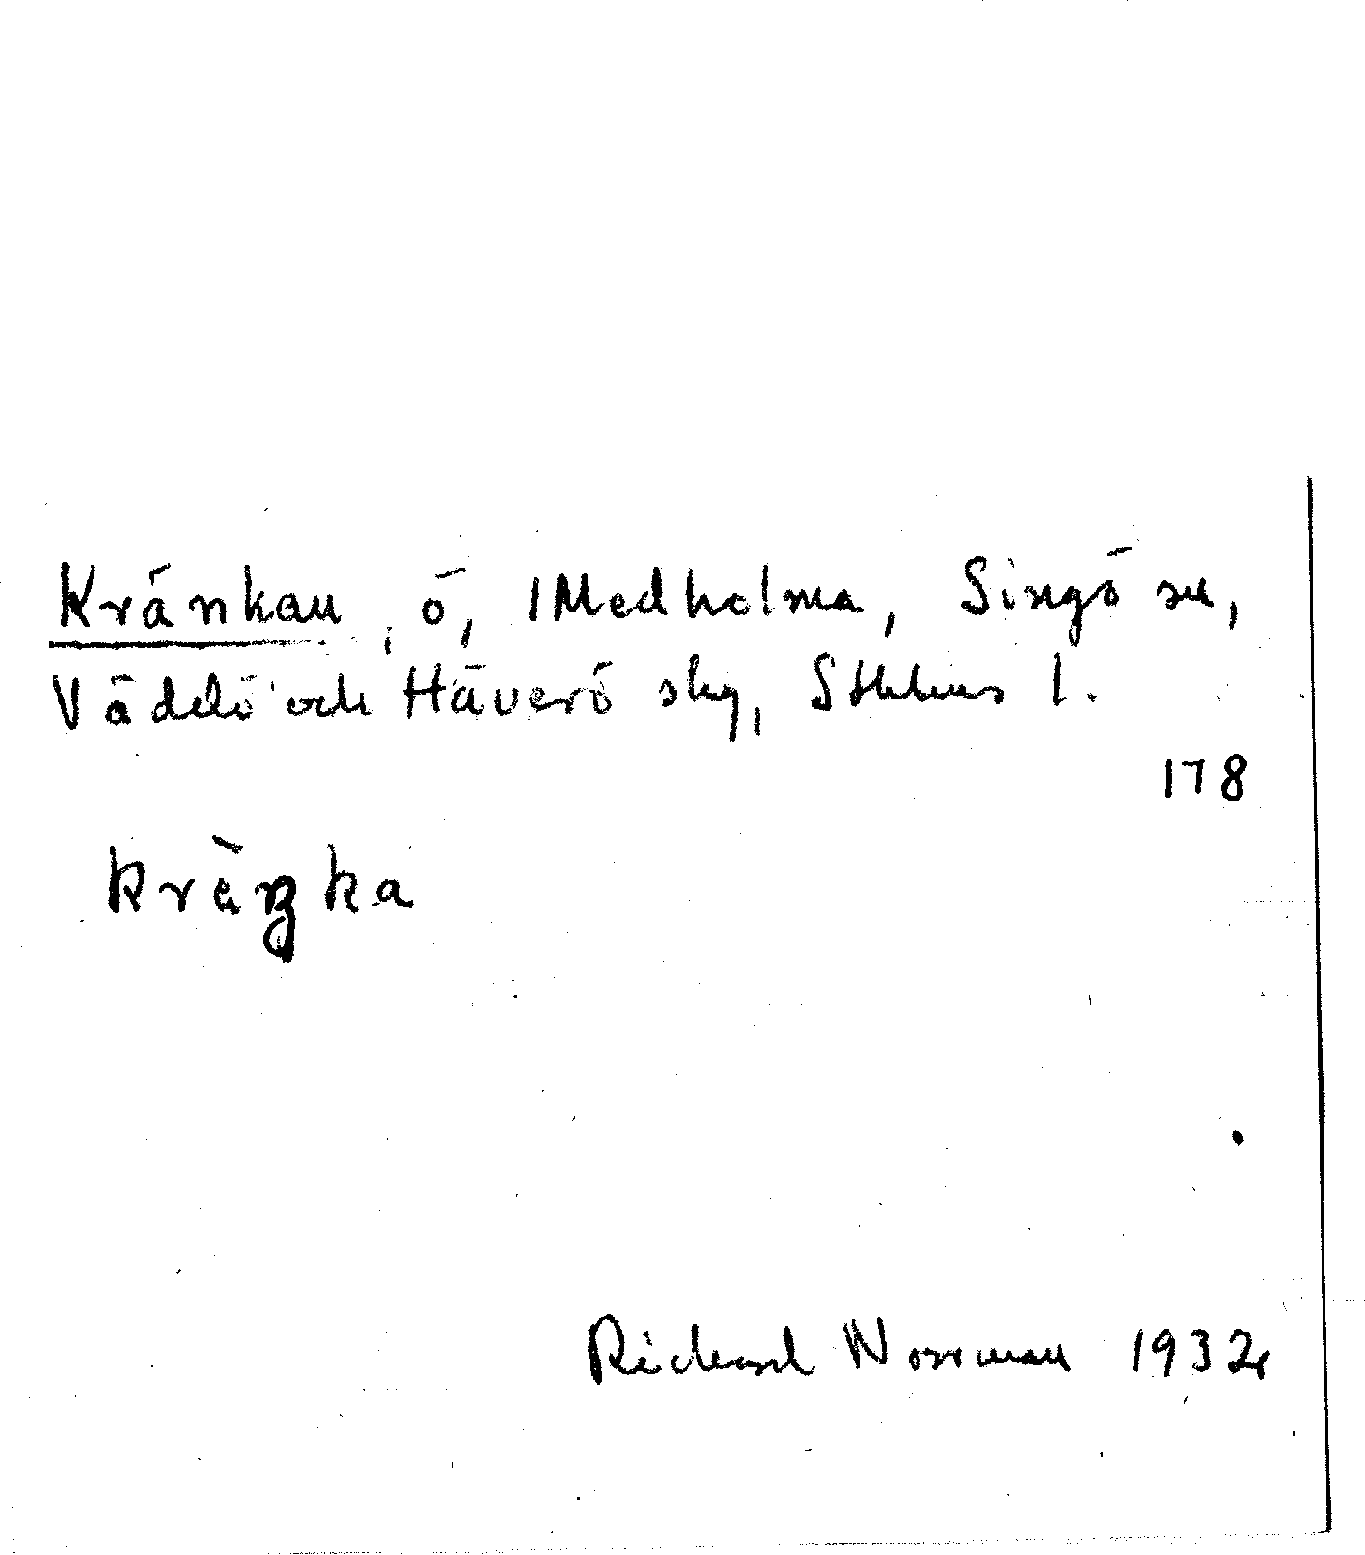 Kränkan, ö, Medholma, Singö sn,
Väddö och Häverö skg, Sthlms l.
178
krèŋka
Richard Norrman 1932